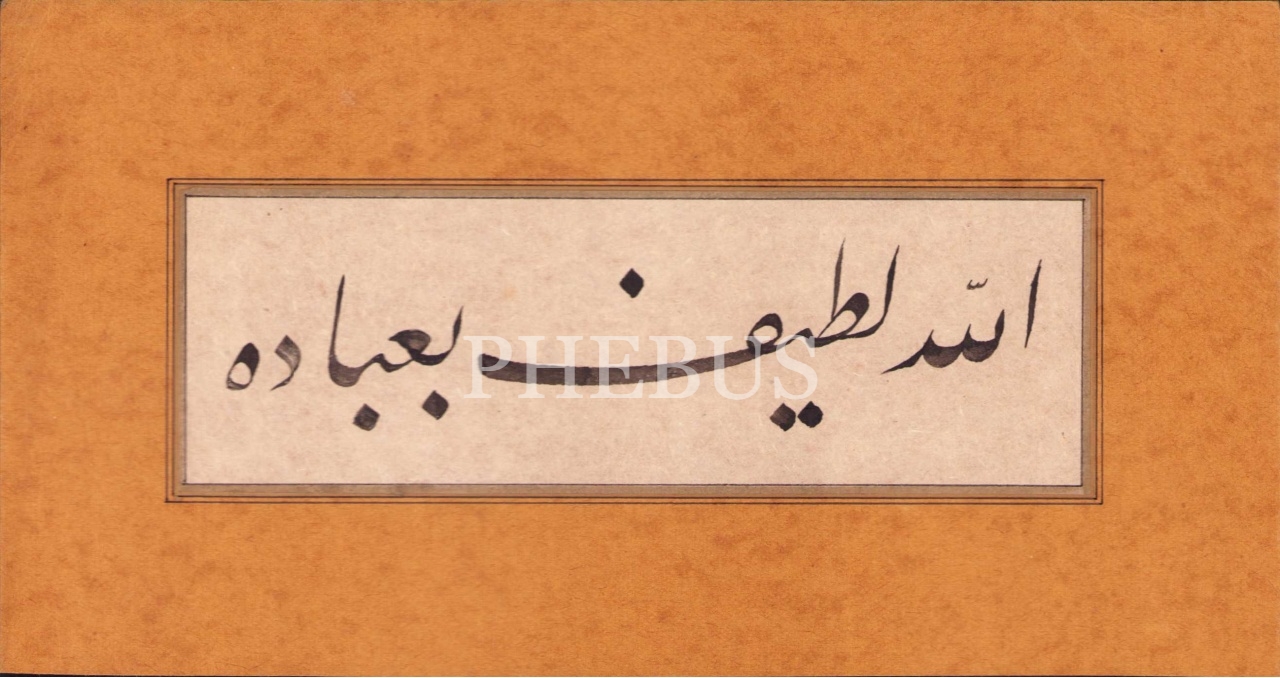 الله لطيف بعباده
PHEBUS